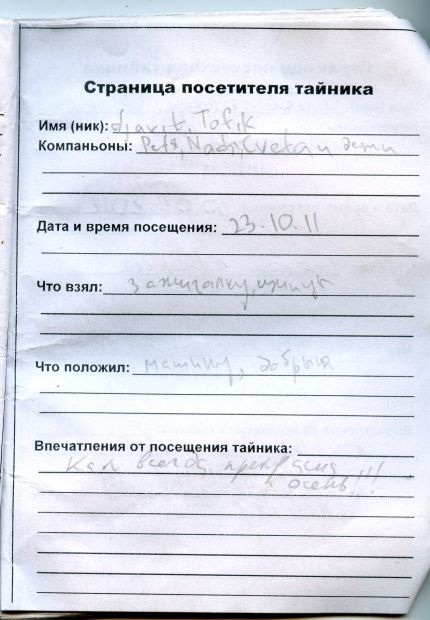 Страница посетителя тайника
Имя (ник): Tofik
Компаньоны: Petя, Nadя, Cveta и дети
Дата и время посещения: 23.10.11
Что взял: зажигалку,
Что положил: машину,
Впечатления от посещения тайника:
Как всегда, прекрасна
осень!!!